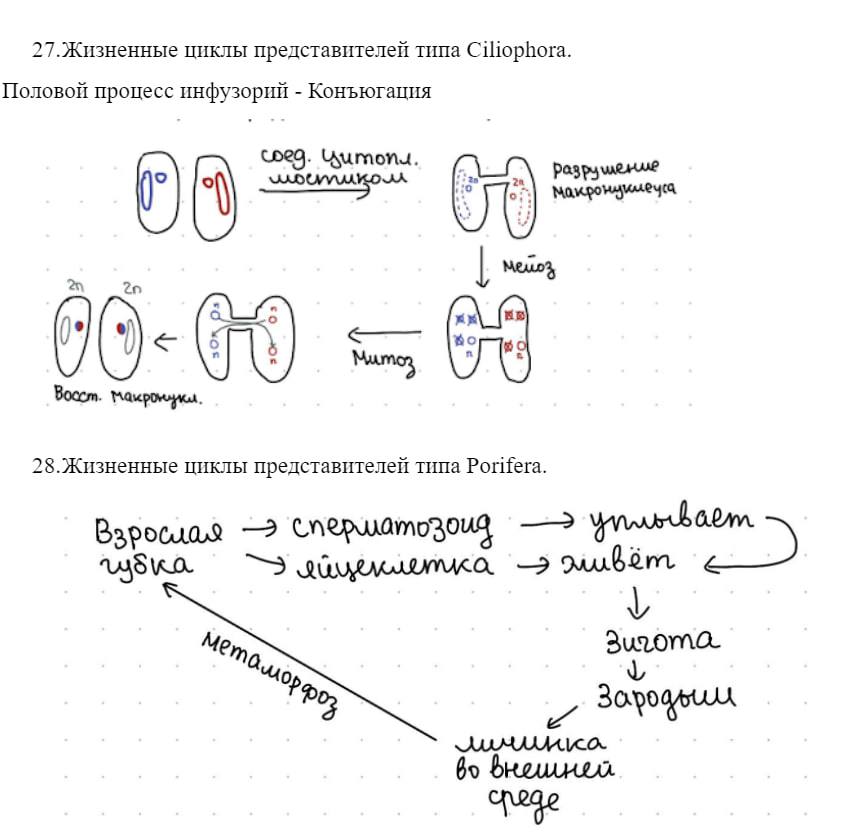 27.Жизненные циклы представителей типа Ciliophora.
Половой процесс инфузорий - Конъюгация
соед. цитопл.
мостиком
2n
2n
Разрушение
макронуклеуса
мейоз
n
n
Митоз
n
n
n
n
2n
2n
Восст. макронукл.
28.Жизненные циклы представителей типа Porifera.
Взрослая → сперматозоид → уплывает
губка → яйцеклетка → живёт
Зигота
Зародыш
метаморфоз
личинка
во внешней
среде